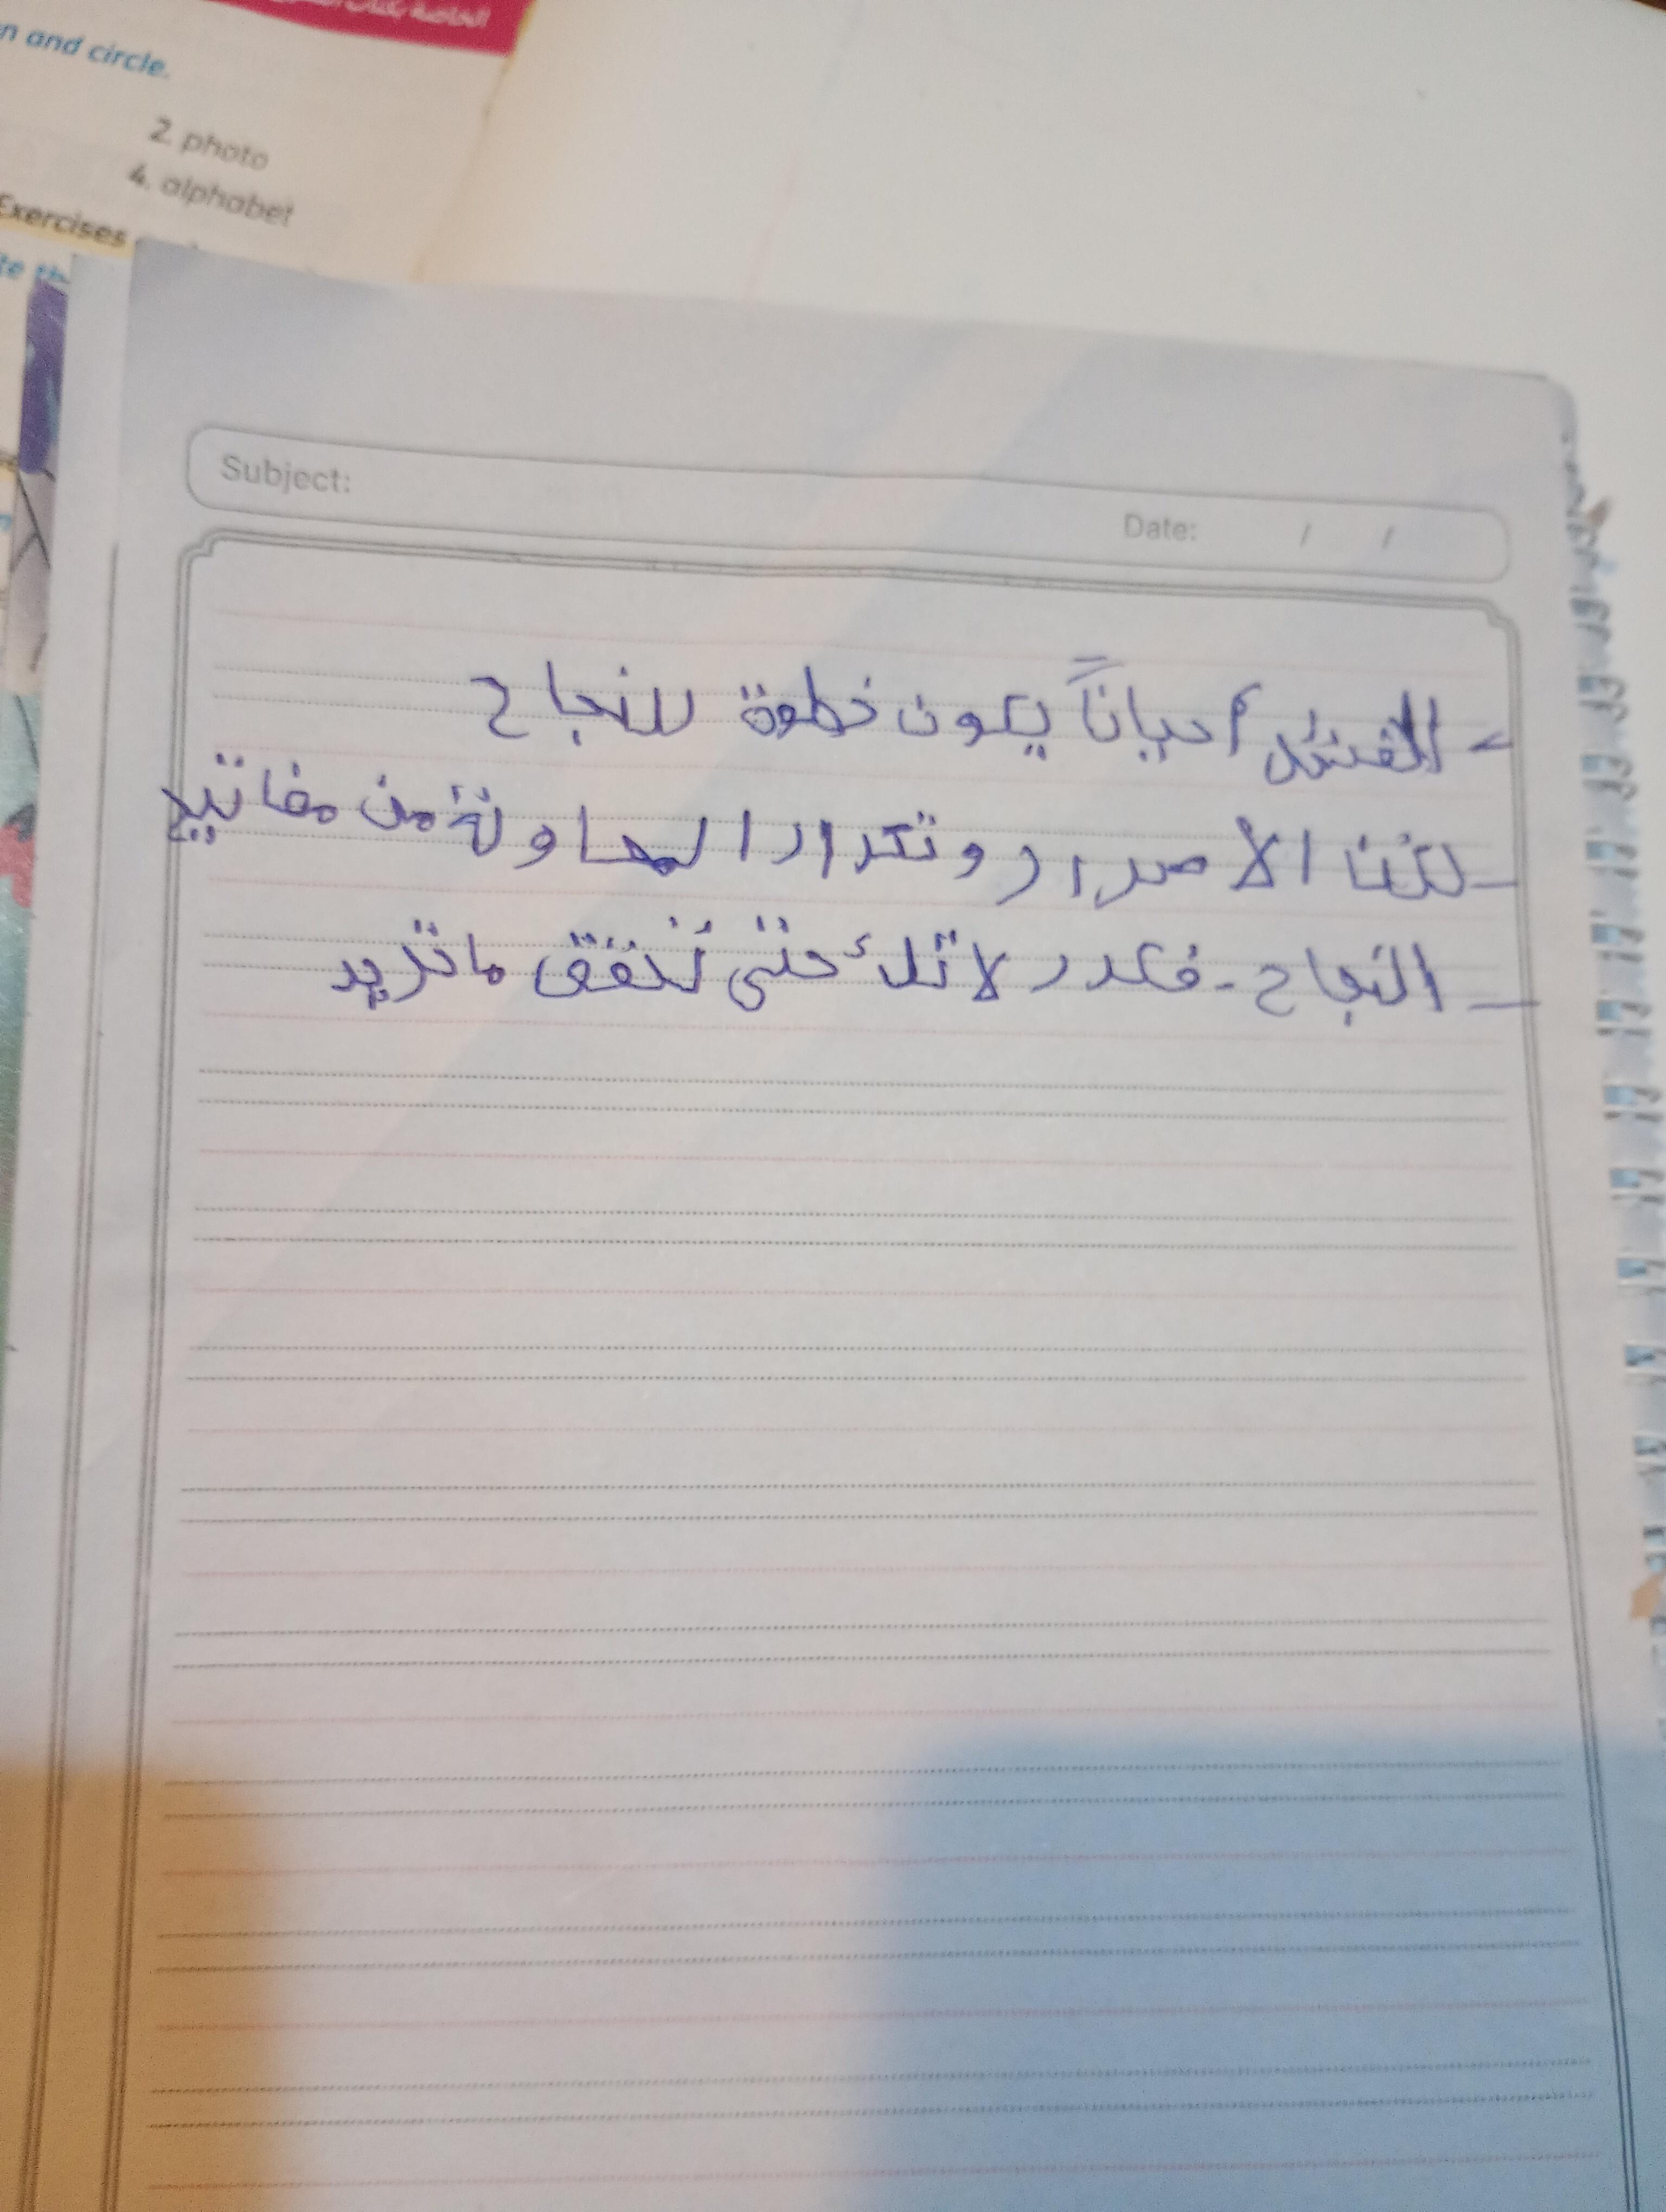 n and circle.
2. photo
4. alphabet
Exercises
Subject:
Date: / /
- الفشل أحياناً يكون خطوة للنجاح
- لكننا الأصرار وتكرار المحاولة من مفاتيح
- النجاح - فكرر لا تكل حتى تحقق ما تريد